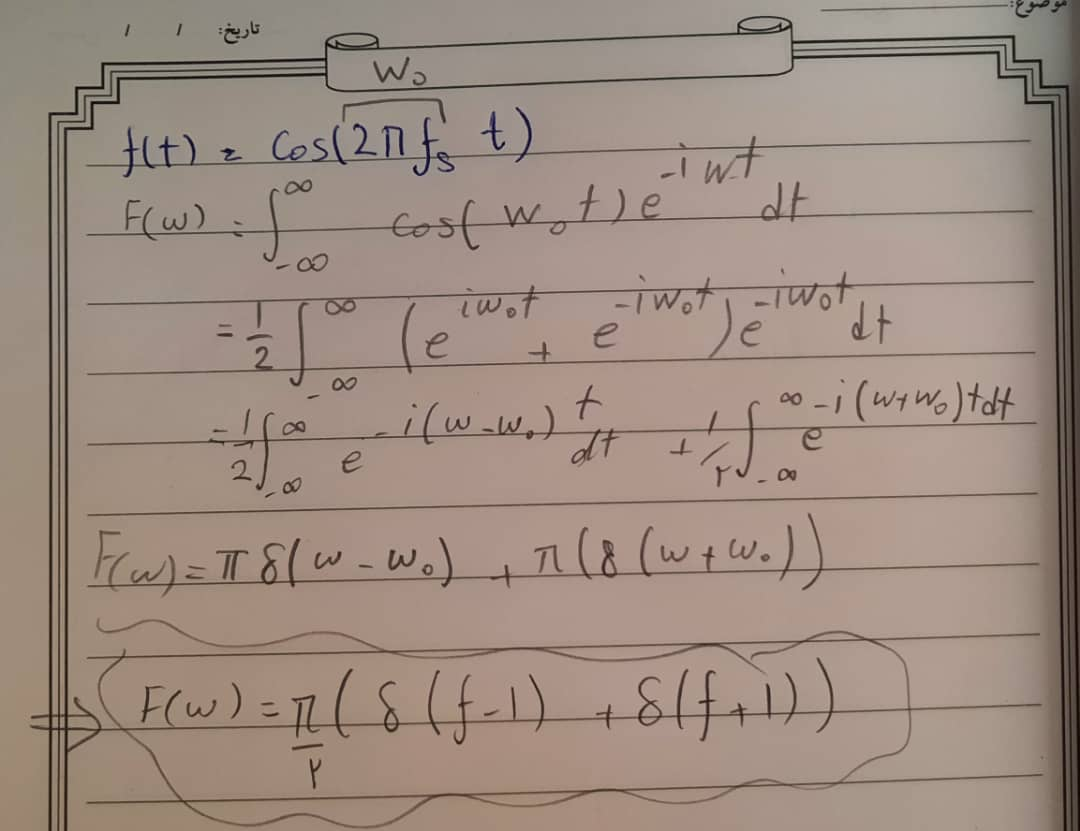 موضوع:
تاریخ: / /
W₀
f(t) = Cos(2π fₛ t)
F(w) = ∫_{-∞}^{∞} cos(w₀t) e^{-iwt} dt
= 1/2 ∫_{-∞}^{∞} (e^{iw₀t} + e^{-iw₀t}) e^{-iw₀t} dt
= 1/2 ∫_{-∞}^{∞} e^{-i(w-w₀)t} dt + 1/۲ ∫_{-∞}^{∞} e^{-i(w+w₀)t} dt
F(w) = π δ(w - w₀) + π(δ(w + w₀))
⇒ F(w) = π/۲ (δ(f-1) + δ(f+1))